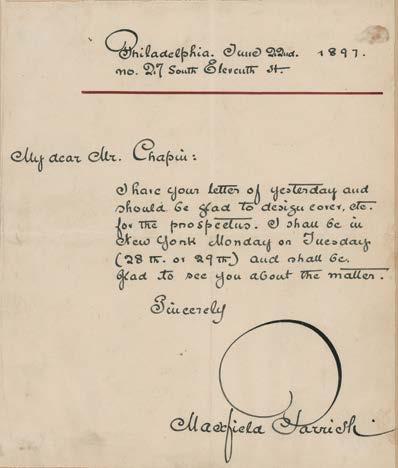 Philadelphia. June 22nd. 1897.
no. 27 South Eleventh St.
My dear Mr. Chapin:
I have your letter of yesterday and
should be glad to design cover, etc.
for the prospectus. I shall be in
New York Monday or Tuesday
(28th. or 29th.) and shall be
glad to see you about the matter.
Sincerely
Maxfield Parrish.